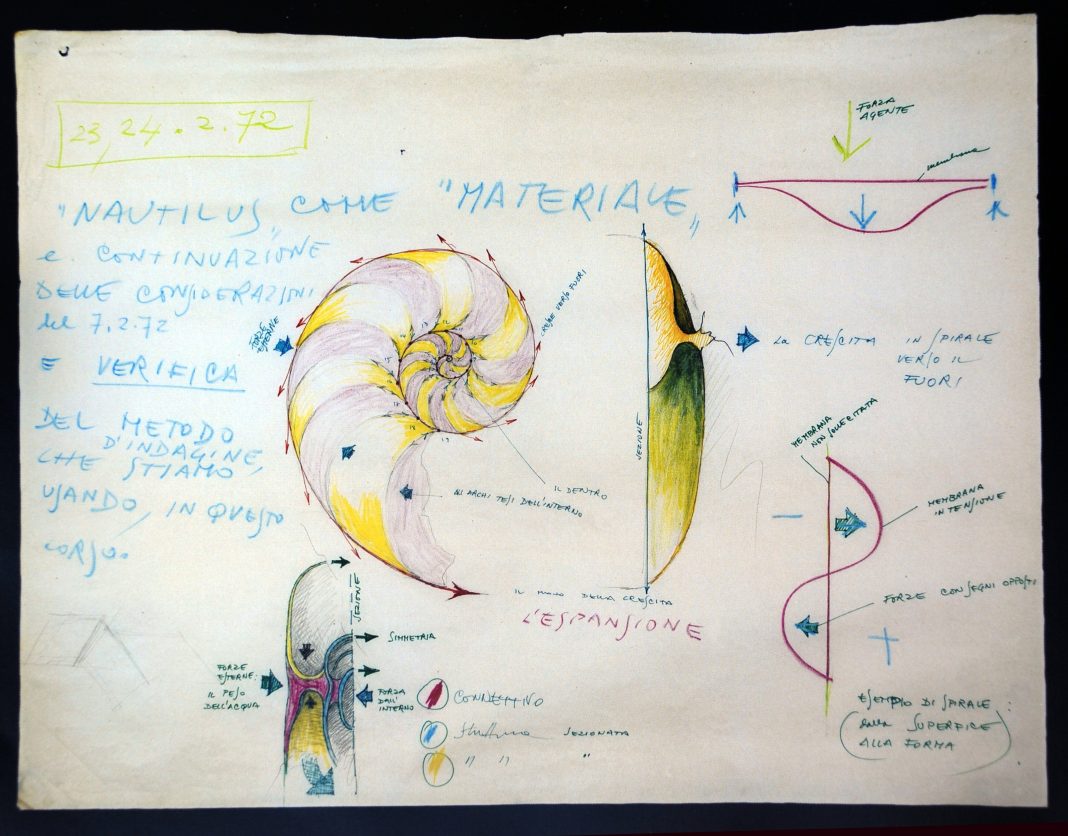 23, 24.2.72
"NAUTILUS" COME "MATERIALE"
e CONTINUAZIONE
DELLE CONSIDERAZIONI
del 7.2.72
E VERIFICA
DEL METODO
D'INDAGINE,
CHE STIAMO
USANDO, IN QUESTO
CORSO.
FORZA
AGENTE
membrana
FORZE
ESTERNE
CRESCE VERSO FUORI
SEZIONE
LA CRESCITA IN SPIRALE
VERSO IL
FUORI
IL DENTRO
GLI ARCHI TESI DELL'INTERNO
IL MODO DELLA CRESCITA
L'ESPANSIONE
MEMBRANA
NON SOLLECITATA
-
MEMBRANA
IN TENSIONE
FORZE CON SEGNI OPPOSTI
+
ESEMPIO DI SPIRALE:
(dalla SUPERFICE
ALLA FORMA)
SEZIONE
SIMMETRIA
FORZE
ESTERNE:
IL PESO
DELL'ACQUA
FORZA
DALL'
INTERNO
CONNETTIVO
Struttura SEZIONATA
" " "